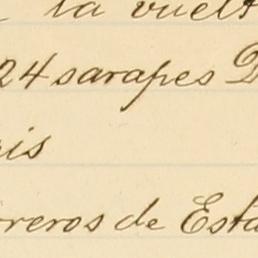 la vuelt
24 sarapes D
is
reros de Esta